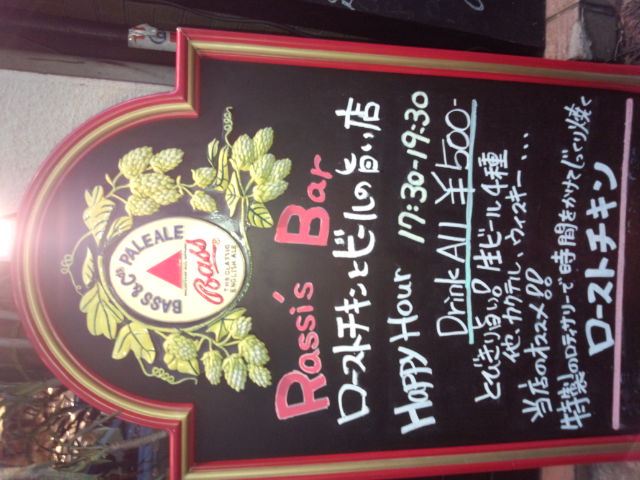 BASS & Co's PALE ALE
Bass
THE CLASSIC
ENGLISH ALE
Rassi's Bar
ローストチキンとビールの旨い店
Happy Hour 17:30-19:30
Drink All ¥500-
とびきり旨い!! 生ビール4種
他、カクテル、ウィスキー...
当店のオススメ!!
特製のロティサリーで時間をかけてじっくり焼く
ローストチキン